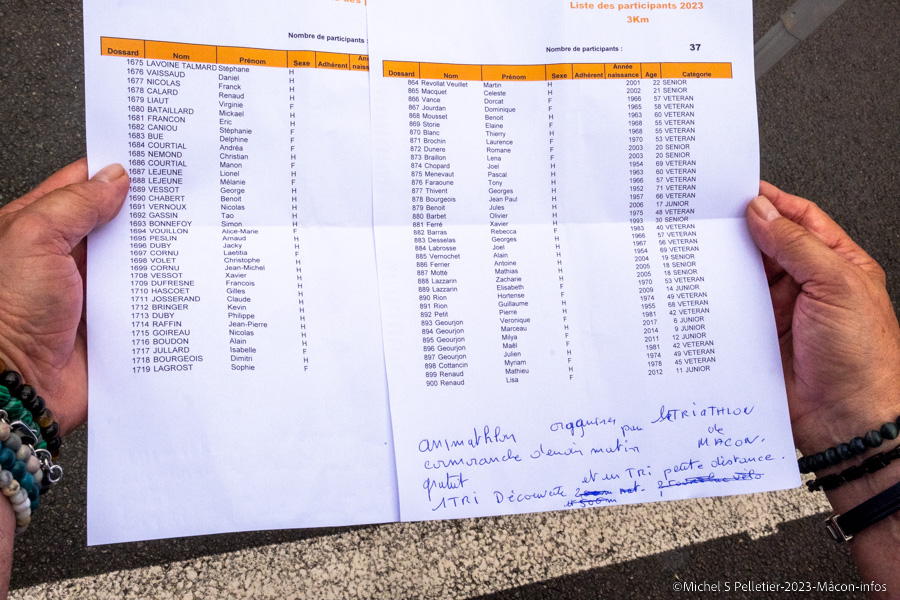 Nombre de participants :
Dossard Nom Prénom Sexe Adhérent
1675 LAVOINE TALMARD Stéphane H
1676 VAISSAUD Daniel H
1677 NICOLAS Franck H
1678 CALARD Renaud H
1679 LIAUT Virginie F
1680 BATAILLARD Mickael H
1681 FRANCON Eric H
1682 CANIOU Stéphanie F
1683 BUE Delphine F
1684 COURTIAL Andréa F
1685 NEMOND Christian H
1686 COURTIAL Manon F
1687 LEJEUNE Lionel H
1688 LEJEUNE Mélanie F
1689 VESSOT George H
1690 CHABERT Benoit H
1691 VERNOUX Nicolas H
1692 GASSIN Tao H
1693 BONNEFOY Simon H
1694 VOUILLON Alice-Marie F
1695 PESLIN Arnaud H
1696 DUBY Jacky H
1697 CORNU Laetitia F
1698 VOLET Christophe H
1699 CORNU Jean-Michel H
1708 VESSOT Xavier H
1709 DUFRESNE Francois H
1710 HASCOET Gilles H
1711 JOSSERAND Claude H
1712 BRINGER Kevin H
1713 DUBY Philippe H
1714 RAFFIN Jean-Pierre H
1715 GOIREAU Nicolas H
1716 BOUDON Alain H
1717 JULLARD Isabelle F
1718 BOURGEOIS Dimitri H
1719 LAGROST Sophie F
Liste des participants 2023
3Km
Nombre de participants : 37
Dossard Nom Prénom Sexe Adhérent Année naissance Age Catégorie
864 Revollat Veuillet Martin H 2001 22 SENIOR
865 Macquet Celeste H 2002 21 SENIOR
866 Vance Dorcat F 1966 57 VETERAN
867 Jourdan Dominique F 1965 58 VETERAN
868 Mousset Benoit H 1963 60 VETERAN
869 Storie Elaine F 1968 55 VETERAN
870 Blanc Thierry H 1968 55 VETERAN
871 Brochin Laurence F 1970 53 VETERAN
872 Dunere Romane F 2003 20 SENIOR
873 Braillon Lena F 2003 20 SENIOR
874 Chopard Joel H 1954 69 VETERAN
875 Menevaut Pascal H 1963 60 VETERAN
876 Faraoune Tony H 1966 57 VETERAN
877 Thivent Georges H 1952 71 VETERAN
878 Bourgeois Jean Paul H 1957 66 VETERAN
879 Benoit Jules H 2006 17 JUNIOR
880 Barbet Olivier H 1975 48 VETERAN
881 Ferré Xavier H 1993 30 SENIOR
882 Barras Rebecca F 1983 40 VETERAN
883 Desselas Georges H 1966 57 VETERAN
884 Labrosse Joel H 1967 56 VETERAN
885 Vernochet Alain H 1954 69 VETERAN
886 Ferrier Antoine H 2004 19 SENIOR
887 Motte Mathias H 2005 18 SENIOR
888 Lazzarin Zacharie H 2005 18 SENIOR
889 Lazzarin Elisabeth F 1970 53 VETERAN
890 Rion Hortense F 2009 14 JUNIOR
891 Rion Guillaume H 1974 49 VETERAN
892 Petit Pierre H 1955 68 VETERAN
893 Geourjon Veronique F 1981 42 VETERAN
894 Geourjon Marceau H 2017 6 JUNIOR
895 Geourjon Milya F 2014 9 JUNIOR
896 Geourjon Maël F 2011 12 JUNIOR
897 Geourjon Julien H 1981 42 VETERAN
898 Cottancin Myriam F 1974 49 VETERAN
899 Renaud Mathieu H 1978 45 VETERAN
900 Renaud Lisa F 2012 11 JUNIOR
animathlon organiser par TRIATHLON
cormoranche demain matin de MACON.
gratuit et un TRI petite distance.
1 TRI Découverte
500m
©Michel S Pelletier-2023-Mâcon-infos